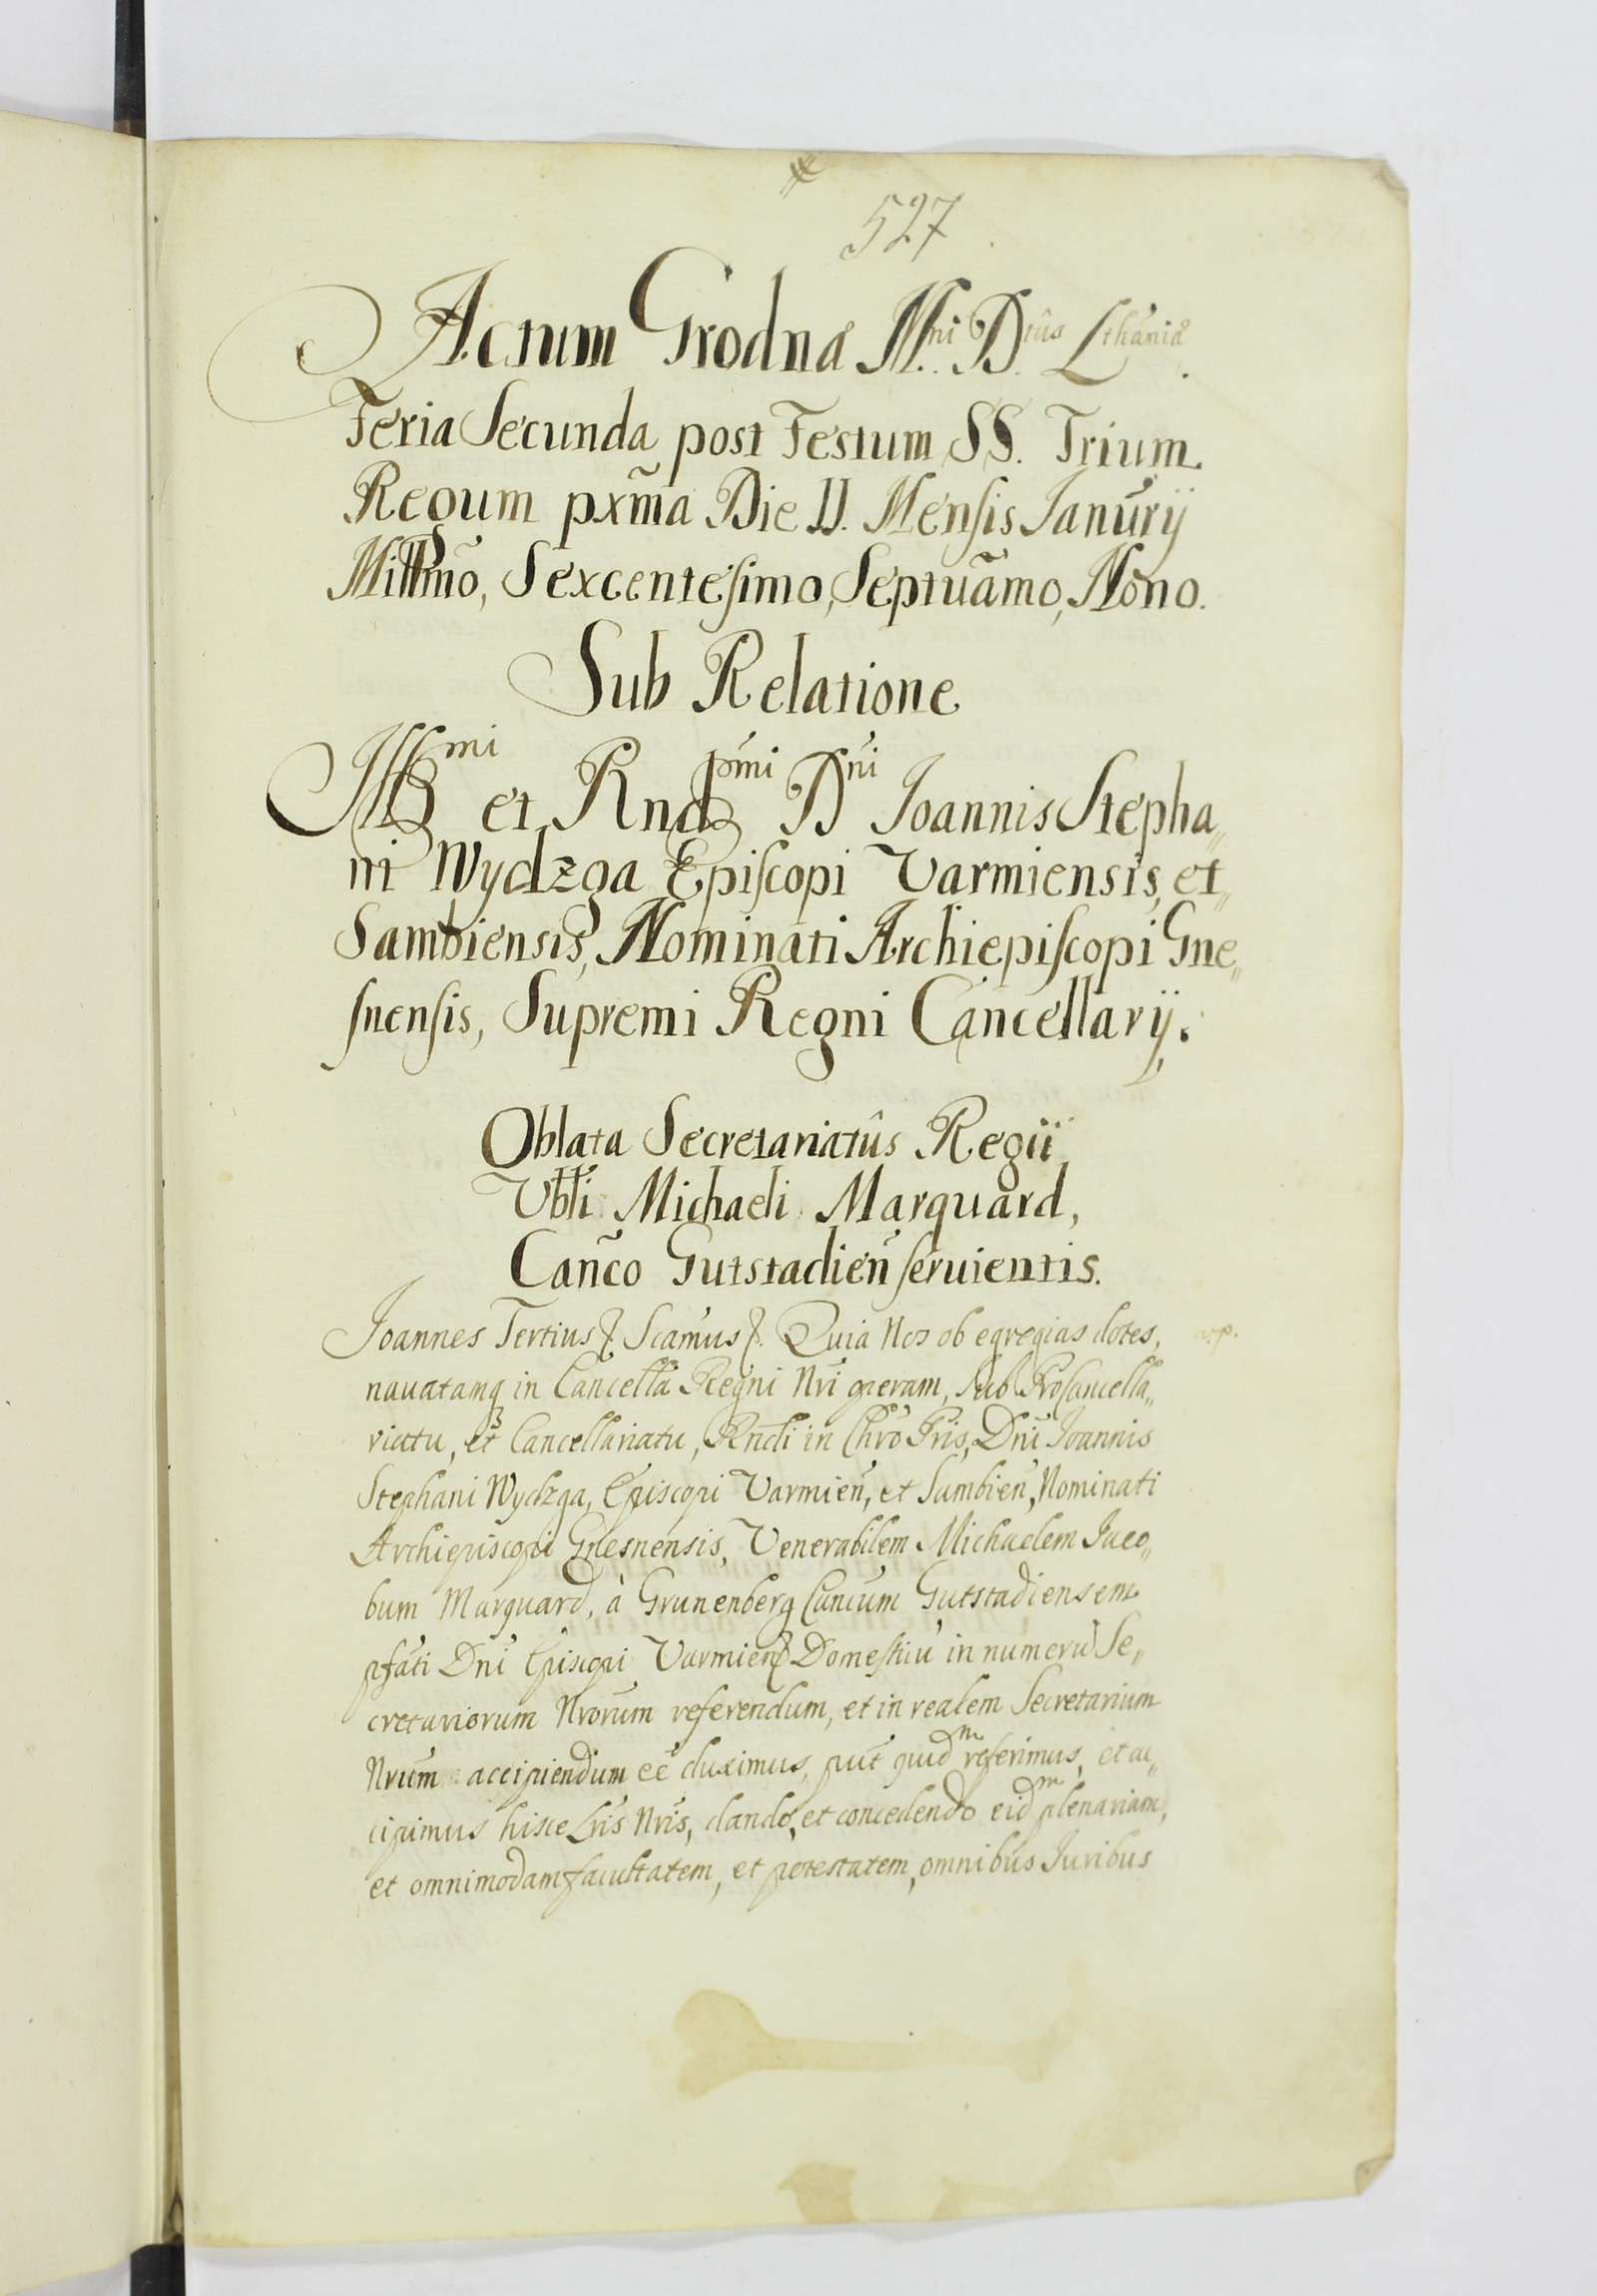 527
Actum Grodnæ M.ni D.tûs Lthaniæ.
Feria Secunda post Festum SS. Trium
Regum pxm̃a Die II. Mensis Ianũrij
Millm̃o, Sexcentesimo, Septuãmo, Nono.
Sub Relatione
Illmi et Rndmi Dni Ioannis Stepha„
ni Wydzga Episcopi Varmiensis, et„
Sambiensis, Nominati Archiepiscopi Gne„
snensis, Supremi Regni Cancellarij.
Oblata Secretariatûs Regii
Vbli Michaeli Marquard,
Cañco Gutstadieñ seruientis.
Joannes Tertius &. Scamus &. Quia Nos ob egregias dotes,
nauatamq in Cancella Regni Nri operam, sub ProCancella„
riatu, et Cancellariatu, Rndi in Chro Pris, Dni Ioannis
Stephani Wydzga, Episcopi Varmieñ, et Sambieñ, Nominati
Archiepiscopi Gnesnensis, Venerabilem Michaelem Iaco„
bum Marquard, à Grunenberg Cancum Gutstadiensem
pfati Dni Episcopi Varmien Domesticũ in numerũ Se„
cretariorum Nrorum referendum, et in realem Secretarium
Nrum accipiendum eẽ duximus, put quidm referimus, et ac„
cipimus hisce Lris Nris, dando, et concedendo eidm plenariam,
et omnimodam facultatem, et potestatem, omnibus Iuribus